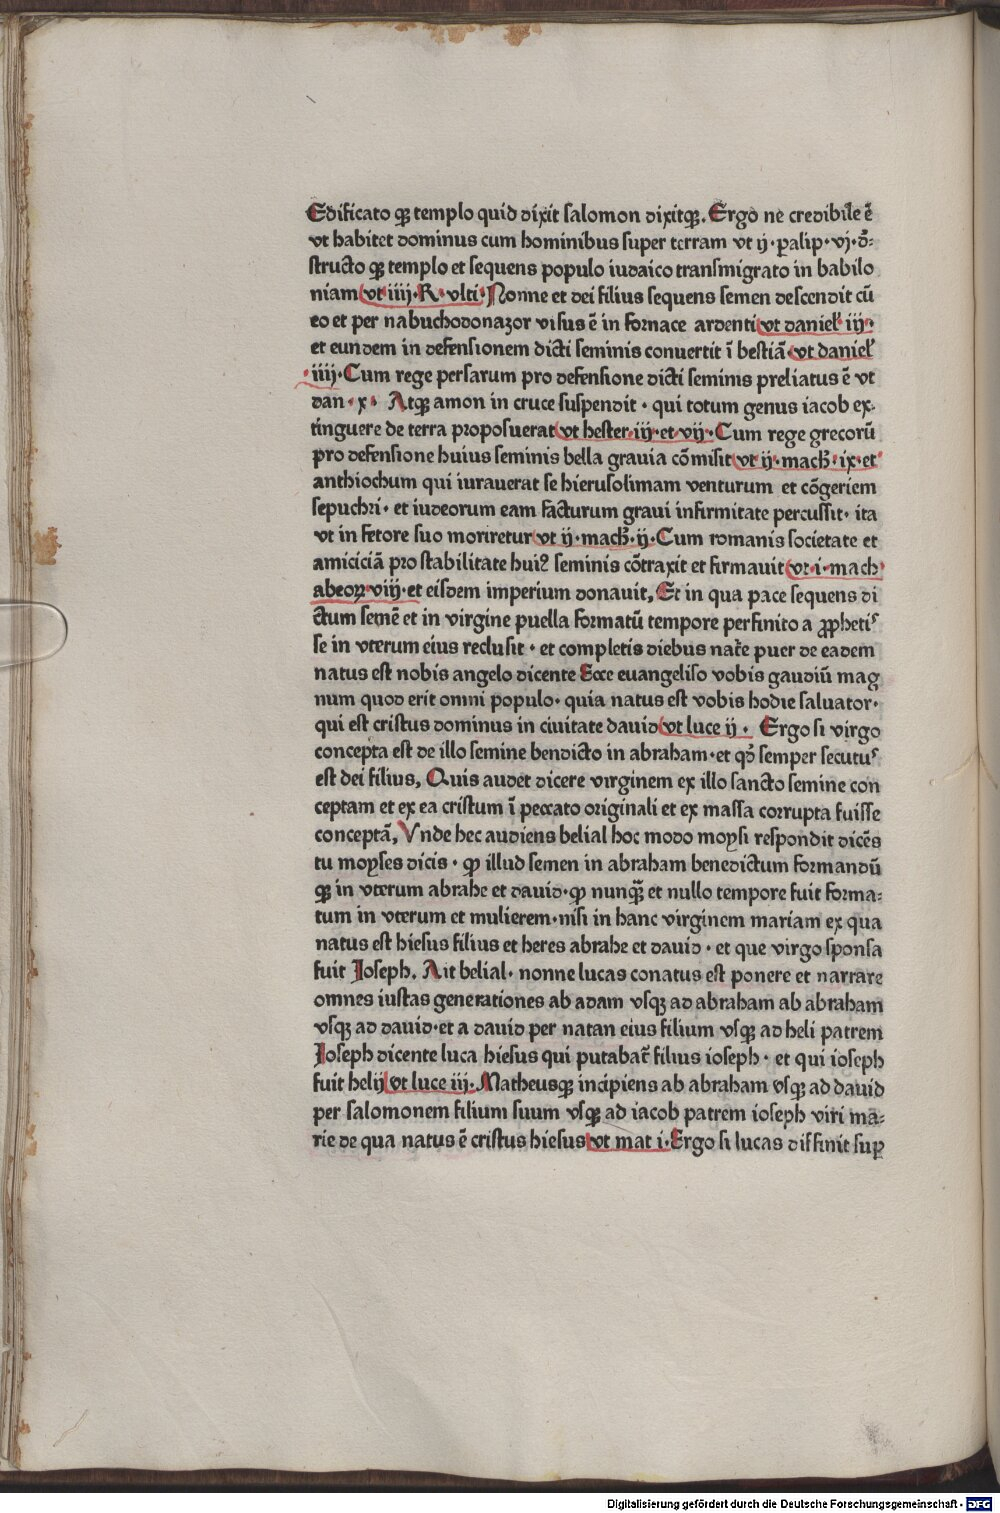 Edificato qꝫ templo quid dixit salomon dixitqꝫ. Ergo ne credibile ē
vt habitet dominus cum hominibus super terram vt ij · ꝑalip · vj · d̄:
structo qꝫ templo et sequens populo iudaico transmigrato in babilo
niam vt iiij · R · vlti · Nonne et dei filius sequens semen descendit cū
eo et per nabuchodonazor visus ē in fornace ardenti vt daniel̓ iij ·
et eundem in defensionem dicti seminis conuertit ī bestiā · vt daniel̓
· iiij · Cum rege persarum pro defensione dicti seminis preliatus ē vt
dan · x · Atqꝫ amon in cruce suspendit · qui totum genus iacob ex-
tinguere de terra proposuerat vt hester · iij · et · vij · Cum rege grecorū
pro defensione huius seminis bella grauia cōmisit vt ij · mach̄ · ix · et
anthiochum qui iurauerat se hierusolimam venturum et cōgeriem
sepuchri · et iudeorum eam facturum graui infirmitate percussit · ita
vt in fetore suo moriretur vt ij · mach̄ · ij · Cum romanis societate et
amiciciā pro stabilitate huiꝰ seminis cōtraxit et firmauit vt · i · mach
abeoꝝ · viij · et eisdem imperium donauit, Et in qua pace sequens di
ctum semē et in virgine puella formatū tempore perfinito a ꝓphetis
se in vterum eius reclusit · et completis diebus nat̄e puer de eadem
natus est nobis angelo dicente Ecce euangeliso vobis gaudiū mag
num quod erit omni populo · quia natus est vobis hodie saluator ·
qui est cristus dominus in ciuitate dauid vt luce ij · Ergo si virgo
concepta est de illo semine bendicto in abraham · et qd̄ semper secutus
est dei filius, Quis audet dicere virginem ex illo sancto semine con
ceptam et ex ea cristum ī peccato originali et ex massa corrupta fuisse
conceptā, Vnde hec audiens belial hoc modo moysi respondit dicēs
tu moyses dicis · ꝙ illud semen in abraham benedictum formandū
qꝫ in vterum abrahe et dauid · ꝙ nunqꝫ̄ et nullo tempore fuit forma:
tum in vterum et mulierem · nisi in hanc virginem mariam ex qua
natus est hiesus filius et heres abrahe et dauid · et que virgo sponsa
fuit Joseph. Ait belial · nonne lucas conatus est ponere et narrare
omnes iustas generationes ab adam vsqꝫ ad abraham ab abraham
vsqꝫ ad dauid · et a dauid per natan eius filium vsqꝫ ad heli patrem
Joseph dicente luca hiesus qui putabat̄ filius ioseph · et qui ioseph
fuit helij vt luce iij · Matheusqꝫ incipiens ab abraham vsqꝫ ad dauid
per salomonem filium suum vsqꝫ ad iacob patrem ioseph viri ma:
rie de qua natus ē cristus hiesus vt mat i · Ergo si lucas diffinit suꝑ
Digitalisierung gefördert durch die Deutsche Forschungsgemeinschaft - DFG